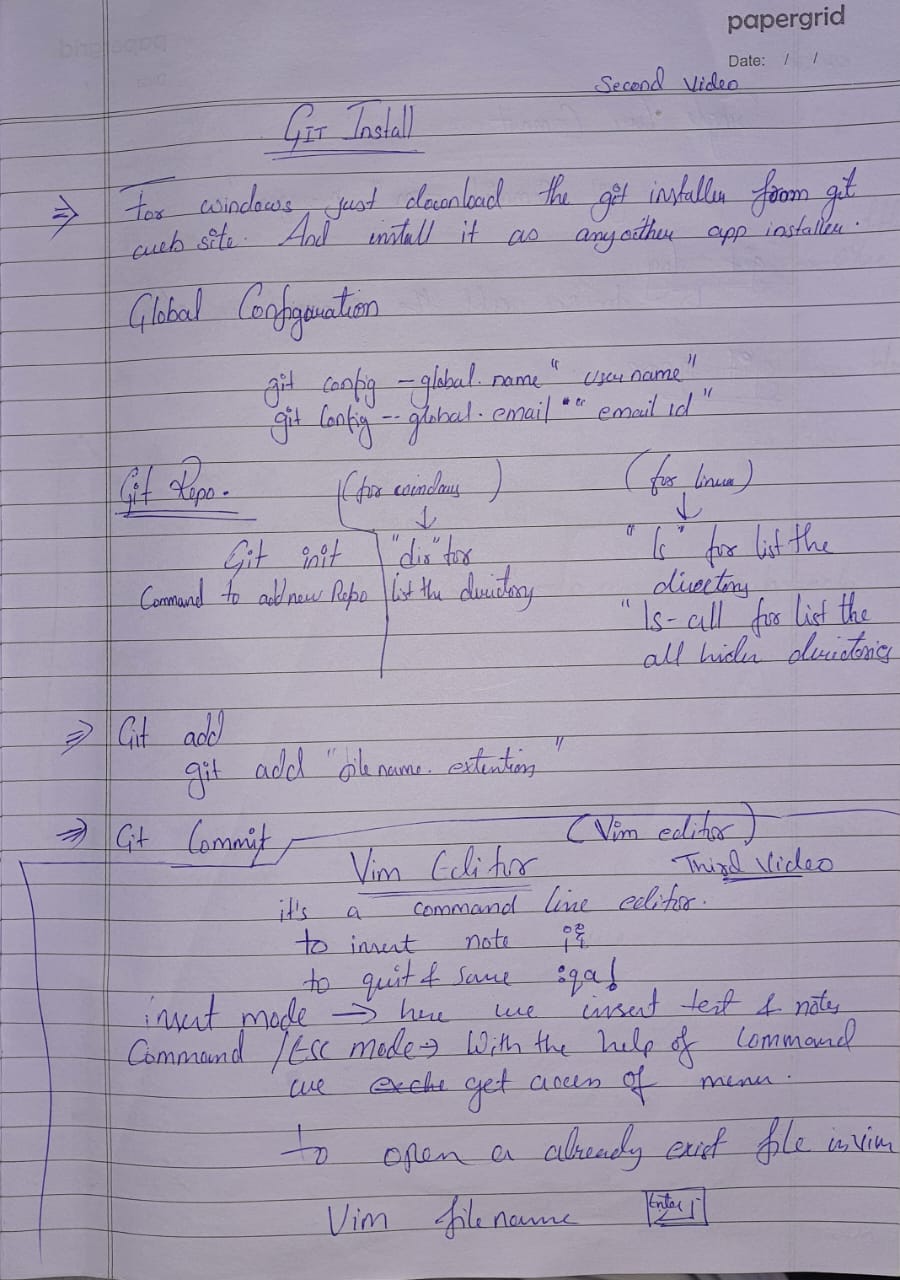 papergrid
Date: / /
Second Video
GIT Install
⇒ For windows just download the git installer from git
web site. And install it as anyother app installer.
Global Configuration
git config -global. name " user name"
git Config -- global. email "" email id"
Git Repo. (for windows) (for linux)
↓ ↓
Git init "dir" for "ls" for list the
Command to add new Repo list the directory directory
"ls-all for list the
all hiden directories
⇒ Git add
git add "file name. extention"
⇒ Git Commit (Vim editor)
Vim Editor Third Video
it's a command line editor.
to insert note
to quit & save :qa!
insert mode → here we insert text & notes
Command /Esc mode → With the help of Command
we get access of menu.
to open a already exist file in vim
Vim filename Enter